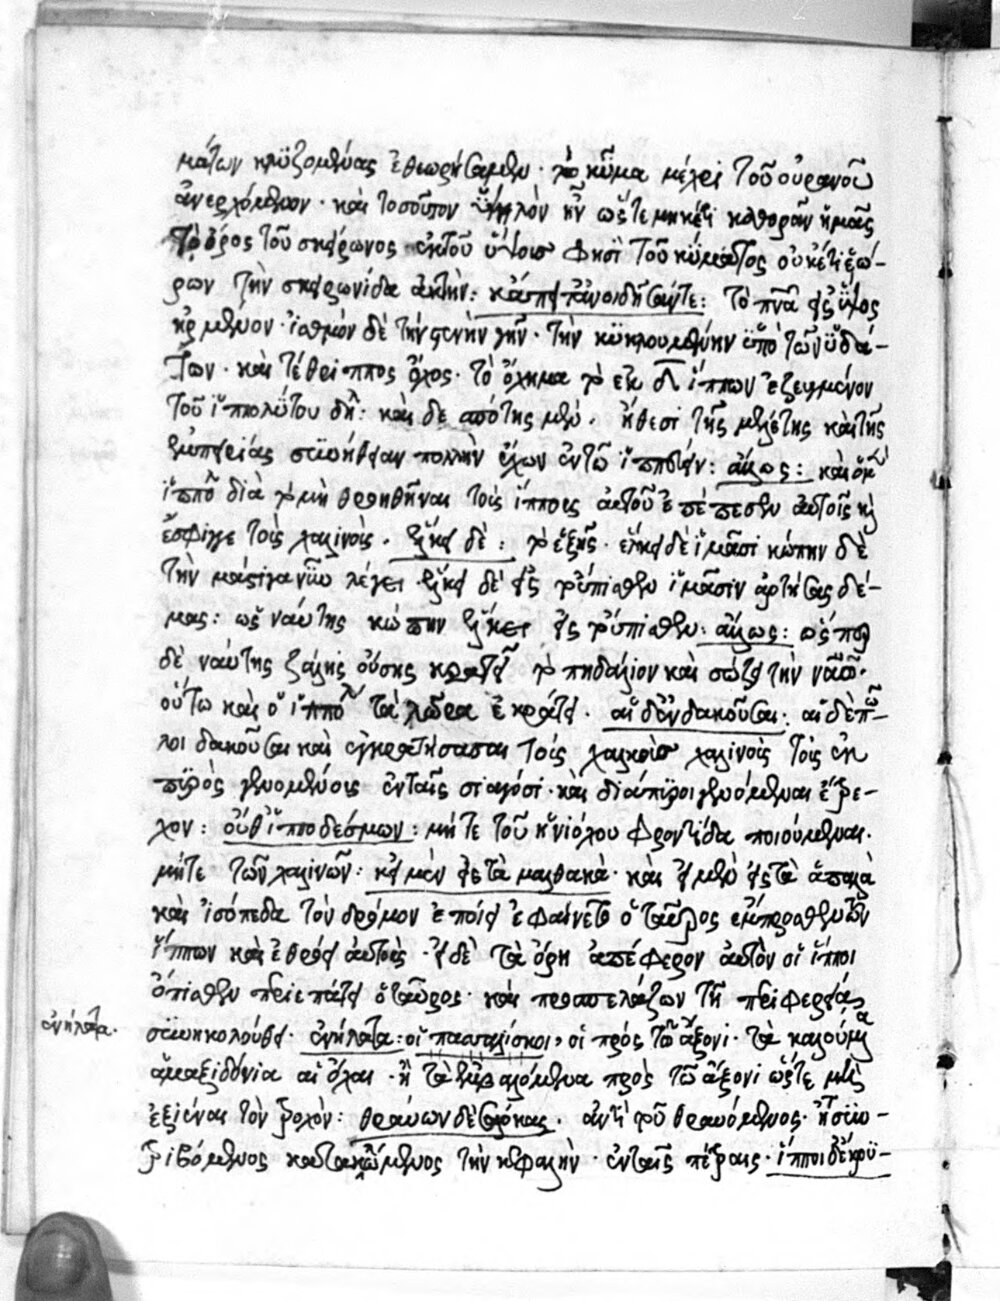 μάτων κλυζομένας ἐθεωρήσαμεν · τὸ κῦμα μέχρι τοῦ οὐρανοῦ
ἀνερχόμενον · καὶ τοσοῦτον ὑψηλὸν ἦν ὥστε μηκέτι καθορᾶν ἡμᾶς
τὸ ὄρος τοῦ σκείρωνος ἐκ τοῦ ὕψους φησὶ τοῦ κύματος οὐκέτι ἑώ-
ρων τὴν σκειρωνίδα ἀκτήν : κἄπειτ' ἀνοιδῆσαν τε : τὸ πνα εἰς ὕψος
μενον · ἰσθμὸν δὲ τὴν στενὴν γῆν · τὴν κυκλουμένην ὑπὸ τῶν ὑδά-
των · καὶ τέθριππος ὄχος · τὸ ὄχημα τὸ ἐκ δ ἵππων ἐζευγμένον
τοῦ ἱππολύτου δη : καὶ δεσπότης μὲν · ἤθεσι τῆς μελέτης καὶ τῆς
ἐμπειρίας συνήθειαν πολλὴν ἔχων ἐν τῶ ἱππεύειν : ἄλλως : καὶ ὁ μὲν
ἱππο διὰ τὸ μὴ θροηθῆναι τοῖς ἵπποις αὐτοῦ ἐπέπεσεν αὐτοῖς κ
ἔσφιγγε τοῖς χαλινοῖς · ἕλκει δὲ : τὸ ἑξῆς · ἕλκει δὲ ἱμᾶσι κώπην δὲ
τὴν μάστιγα νῦν λέγει ἕλκει δὲ εἰς τοὔπισθεν ἱμᾶσιν ἀρτήσας δέ-
μας : ὡς ναύτης κώπην ἕλκει εἰς τοὔπισθεν · ἄλλως : ὥσπερ
δὲ ναύτης ζάλης οὔσης κρατεῖ τὸ πηδάλιον καὶ σώζει τὴν ναῦν ·
οὕτω καὶ ὁ ἱππολ τὰ λῶρα ἐκράτει · αἱ δ' ἐνδακοῦσαι : αἱ δὲ πῶ-
λοι δακοῦσαι καὶ ἐγκρατήσασαι τοῖς χαλκοῖς χαλινοῖς τοῖς ἐκ
πυρὸς γενομένοις ἐν ταῖς σιαγόσι · καὶ διάπυροι γενόμεναι ἔτρε-
χον : οὔθ' ἱπποδέσμων : μήτε τοῦ ἡνιόχου φροντίδα ποιούμεναι ·
μήτε τῶν χαλινῶν : κεἰ μὲν εἰς τὰ μαλθακὰ · καὶ εἰ μὲν εἰς τὰ ἁπαλὰ
καὶ ἰσόπεδα τὸν δρόμον ἐποίει ἐφαίνετο ὁ ταῦρος ἔμπροσθεν τῶν
ἵππων καὶ ἐθρόει αὐτοὺς · εἰ δὲ τὰ ὄρη ἀπέφερον αὐτὸν οἱ ἵπποι
ὄπισθεν περιεπάτει ὁ ταῦρος · καὶ προσπελάζων τῆ περιφερείας
συνηκολούθει · ἐνήλατα : οἱ πασσαλίσκοι, οἱ πρὸς τῶ ἄξονι · τὰ καλούμενα
ἐνήλατα ·
ἁμαξιδόνια αἱ ὄχαι · ἢ τὰ ἐμβαλόμενα πρὸς τῶ ἄξονι ὥστε μὴ
ἐξιέναι τὸν τροχόν : θραύων δὲ σάρκας · ἀντὶ τοῦ θραυόμενος · ἤτοι συν-
τριβόμενος καὶ τὴν κεφαλὴν · ἐν ταῖς πέτραις · ἵπποι δ' ἔκρυ-